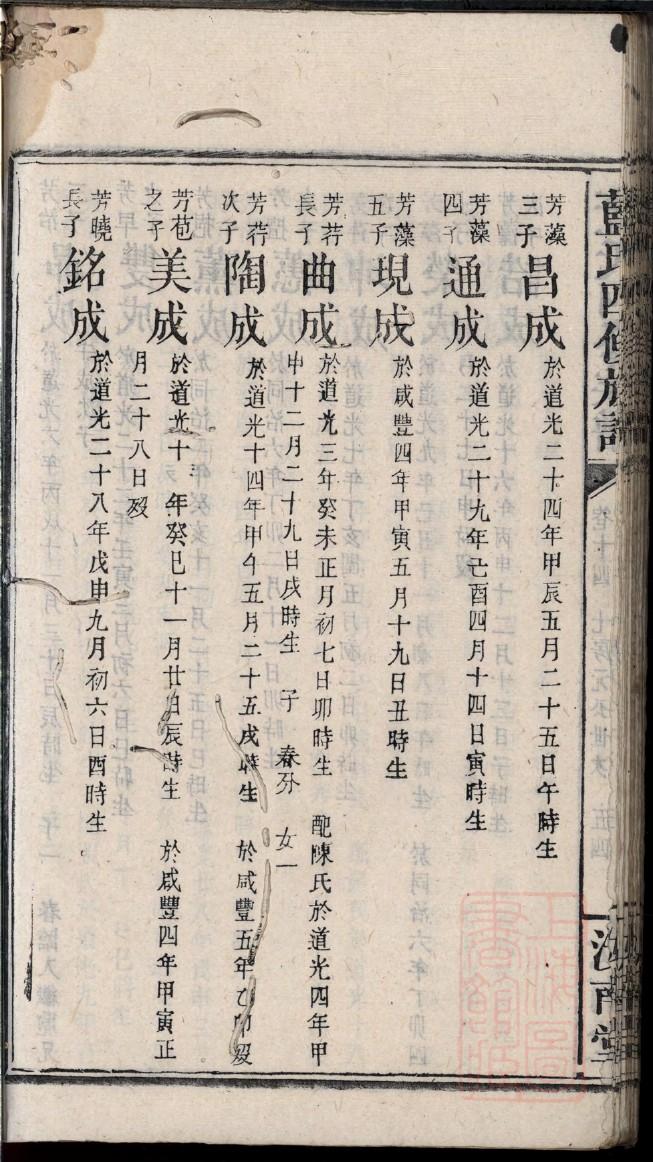 藍氏四修族譜
卷十四
汝南堂
芳藻三子 昌成 於道光二十四年甲辰五月二十五日午時生
芳藻四子 通成 於道光二十九年己酉四月十四日寅時生
芳藻五子 現成 於咸豐四年甲寅五月十九日丑時生
芳若長子 曲成 於道光三年癸未正月初七日卯時生 配陳氏於道光四年甲
申十二月二十九日戌時生 子 春
女一
芳若次子 陶成 於道光十四年甲午五月二十五戌時生 於咸豐五年乙卯歿
芳苞之子 美成 於道光十 年癸巳十一月廿日辰時生 於咸豐四年甲寅正
月二十八日歿
芳曉長子 銘成 於道光二十八年戊申九月初六日酉時生